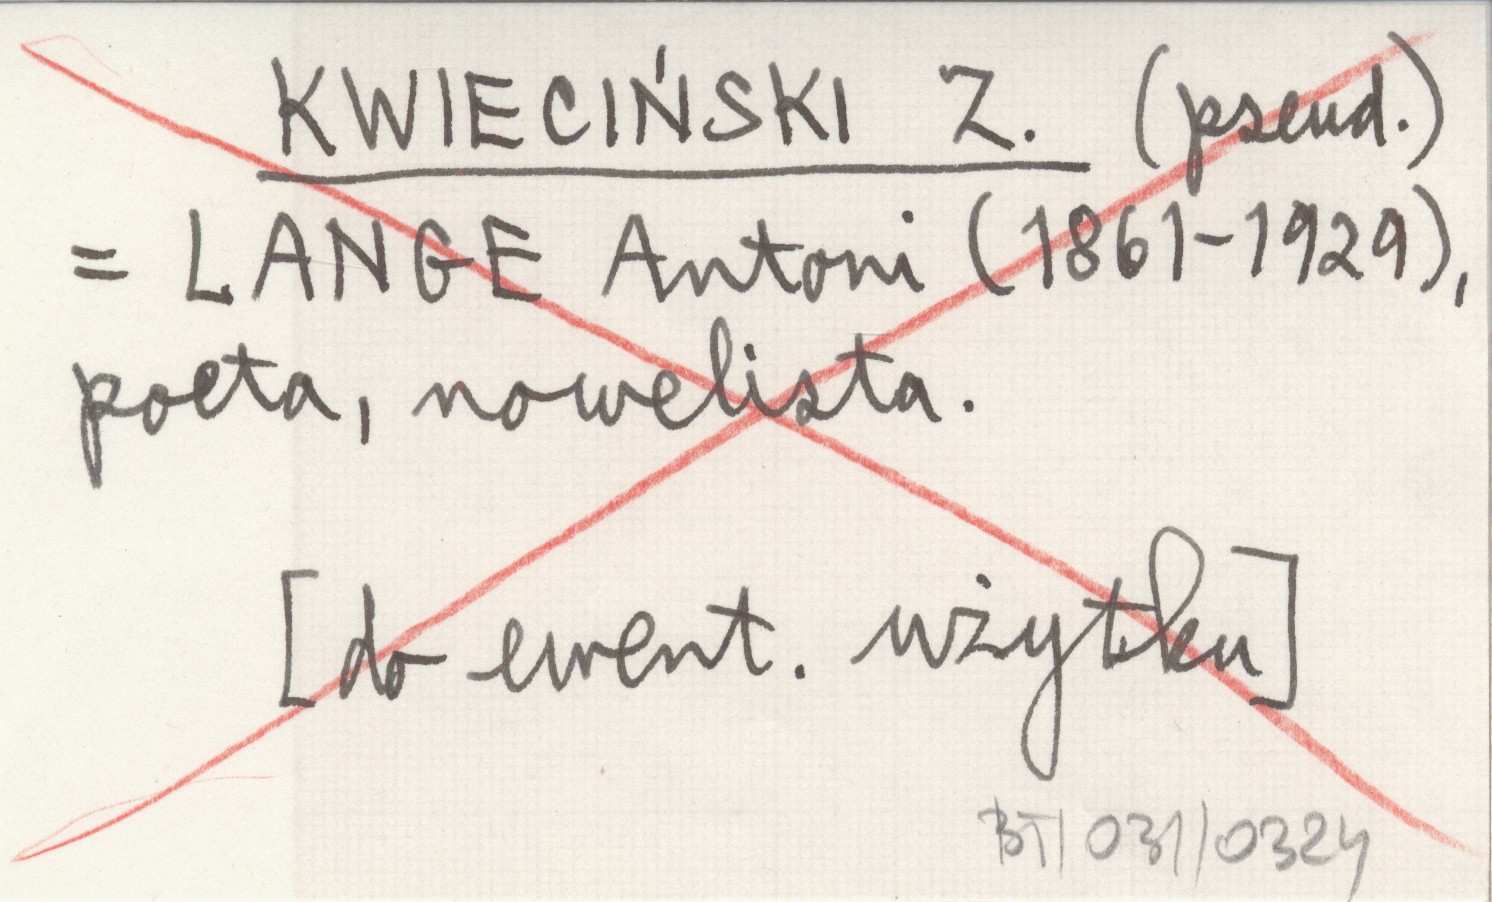 KWIECIŃSKI Z. (pseud.)
= LANGE Antoni (1861-1929),
poeta, nowelista.
[do ewent. użytku]
BT/031/0324